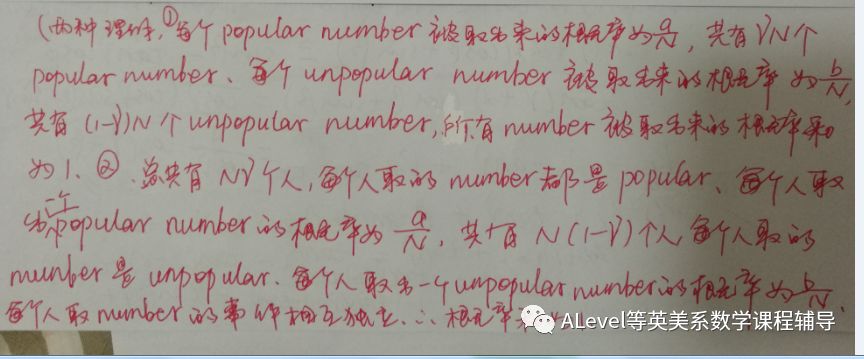 (两种理解,①每个popular number 被取出来的概率为a/N, 共有γN个
popular number、每个 unpopular number 被取出来的概率为b/N,
共有 (1-γ)N 个 unpopular number, 所有 number 被取出来的概率和
为 1. ② 总共有 Nγ 个人, 每个人取的 number 都是 popular、每个人取
出一个popular number 的概率为 a/N, 共有 N(1-γ)个人 每个人取的
number 是 unpopular. 每个人取出一个unpopular number的概率为b/N.
每个人取 number 的事件相互独立. ∴ 概率
ALevel等英美系数学课程辅导